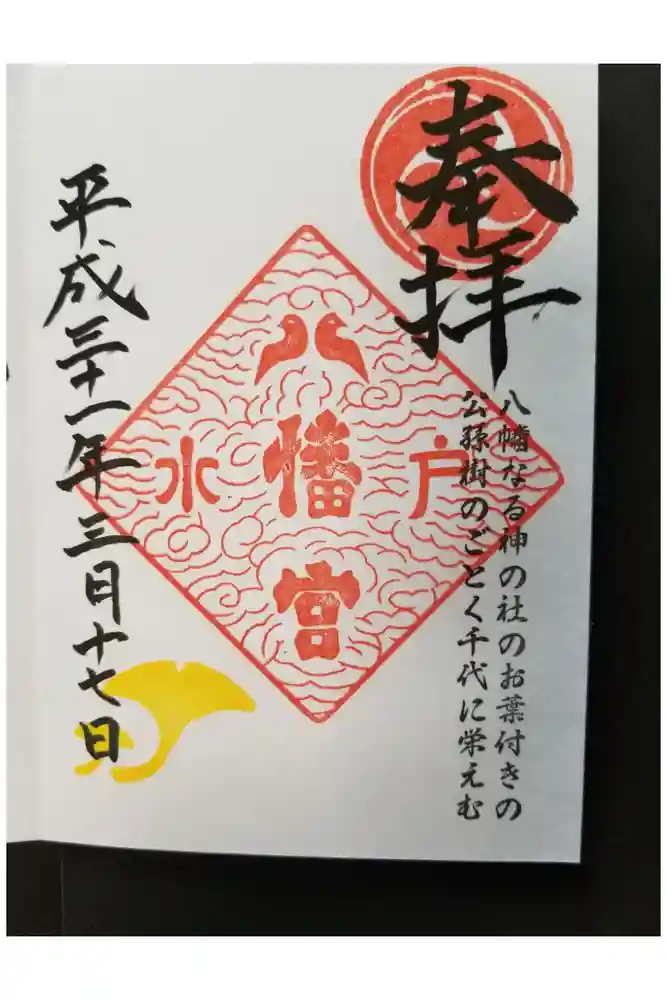 奉拝
八幡なる神の社のお葉付きの
公孫樹のごとく千代に栄えむ
八幡宮
水戸
平成三十一年三日十七日